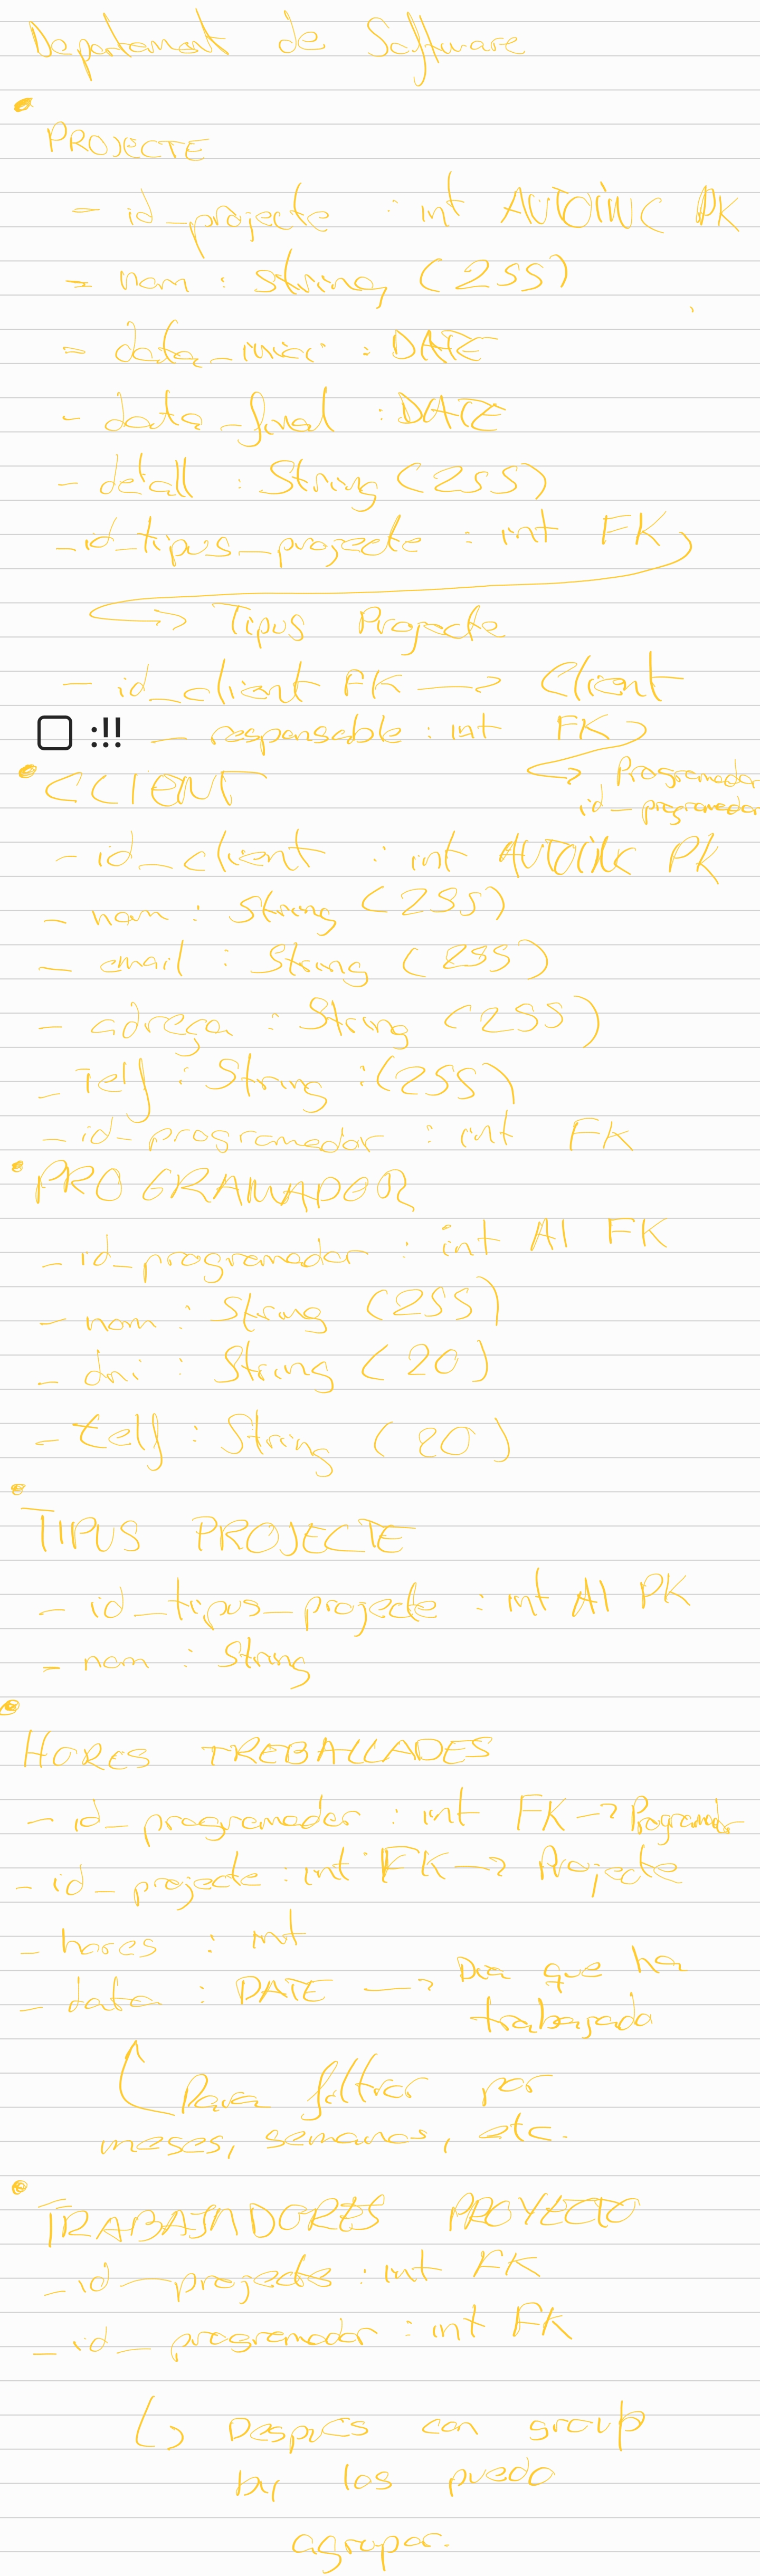 Departament de Software
PROJECTE
- id_projecte : int AUTOINC PK
- nom : string (255)
- data_inici : DATE
- data_final : DATE
- detall : String (255)
- id_tipus_projecte : int FK
→ Tipus Projecte
- id_client FK → Client
- responsable : int FK
→ Programador
id_programador
CLIENT
- id_client : int AUTOINC PK
- nom : String (255)
- email : String (255)
- adreça : String (255)
- Telf : String : (255)
- id_programador : int FK
PROGRAMADOR
- id_programador : int AI FK
- nom : String (255)
- dni : String (20)
- telf : String (20)
TIPUS PROJECTE
- id_tipus_projecte : int AI PK
- nom : String
HORES TREBALLADES
- id_programador : int FK → Programador
- id_projecte : int FK → Projecte
- hores : int
- data : DATE → Dia que ha
trabajado
Para filtrar por
meses, semanas, etc.
TRABAJADORES PROYECTO
- id_projecte : int FK
- id_programador : int FK
↳ Despues con group
by los puedo
agrupar.